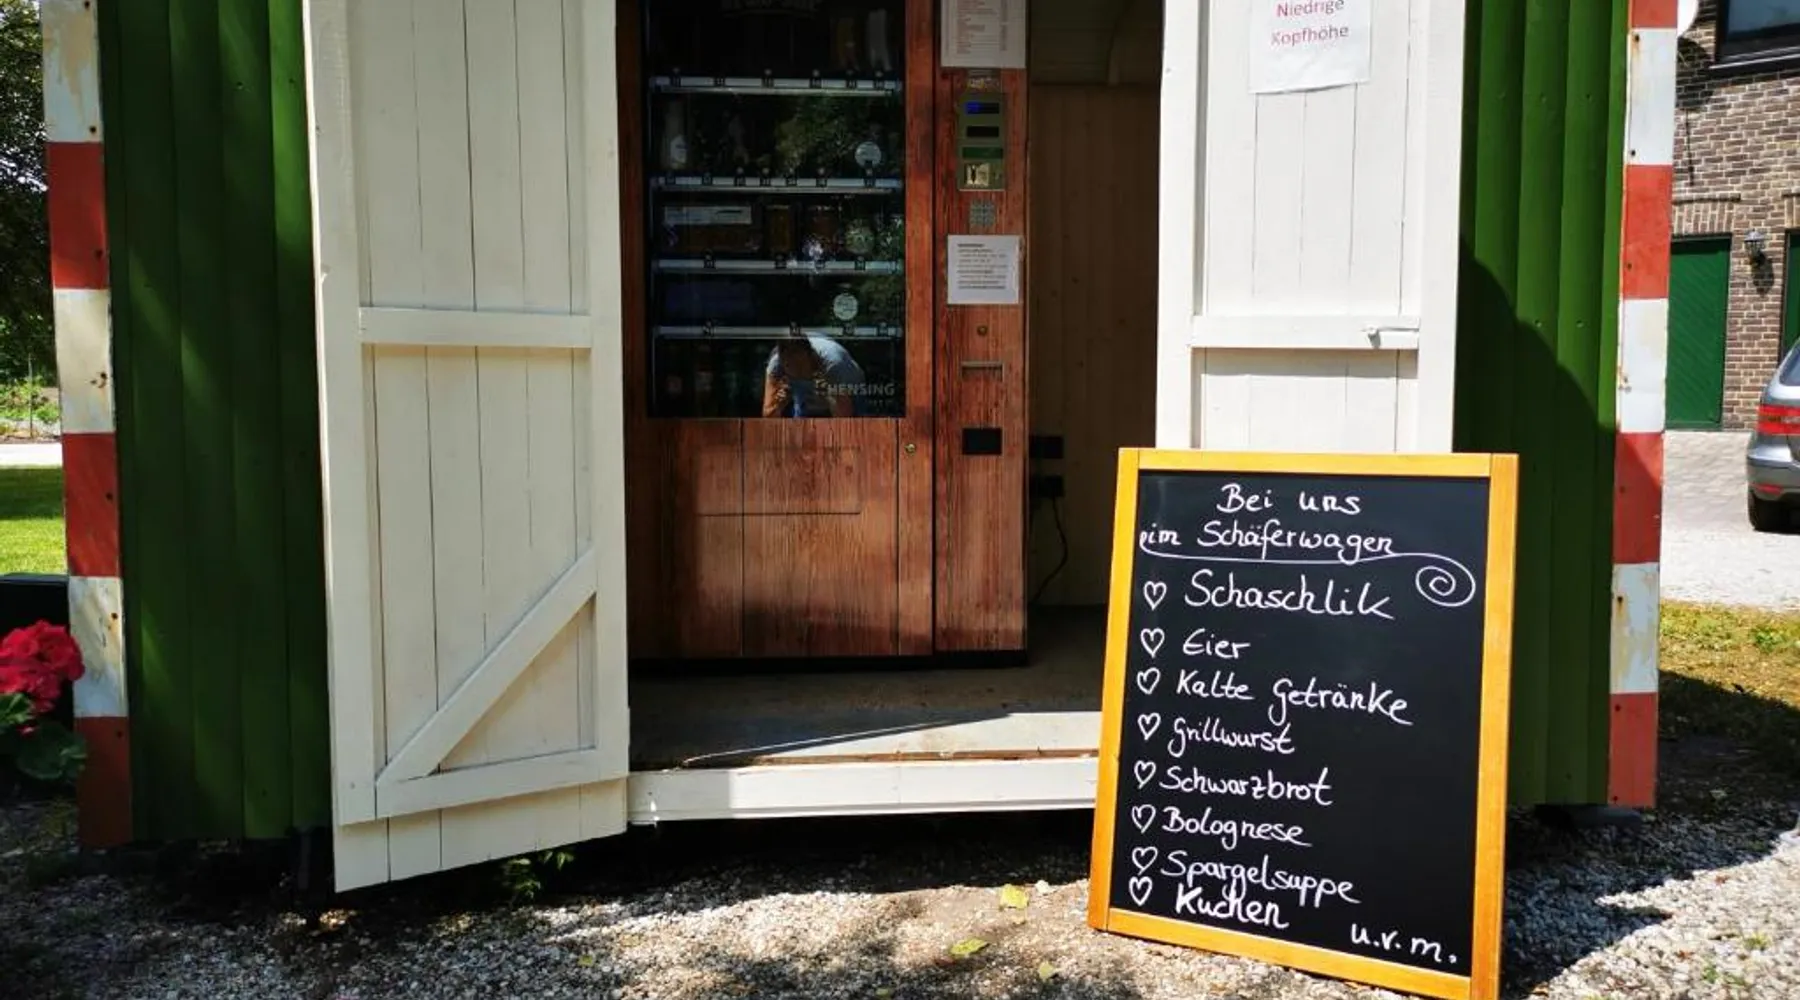 Niedrige
Kopfhöhe
HENSING
Bei uns
im Schäferwagen
Schaschlik
Eier
Kalte Getränke
Grillwurst
Schwarzbrot
Bolognese
Spargelsuppe
Kuchen
u.v.m.